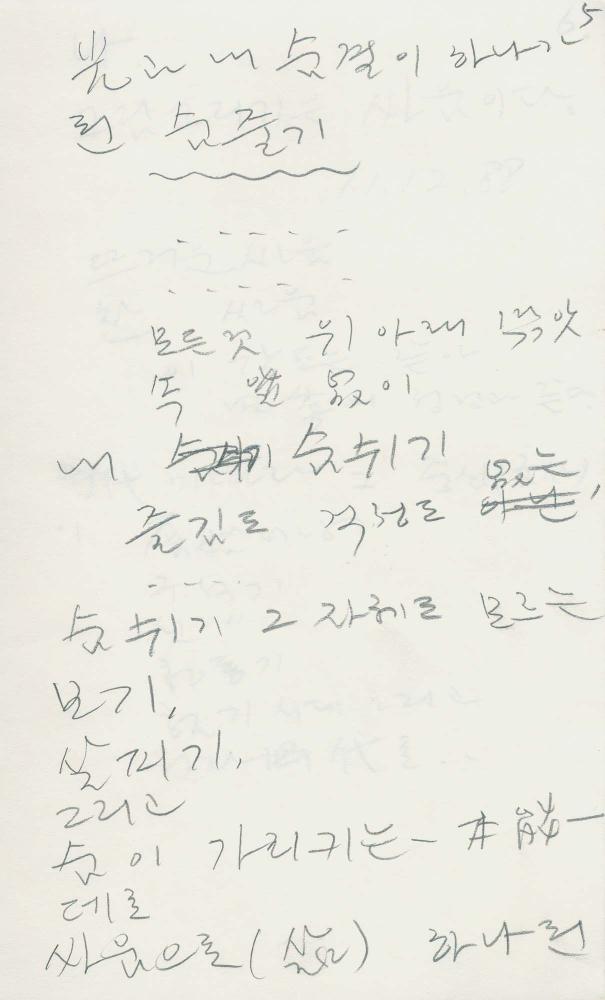 5
光과 내 숨결이 하나가
된 숨줄기
모든것 위 아래
쏙 없이
내 숨쉬기
즐김도 걱정도 없는,
숨쉬기 그 자체로 모르는
보기,
살피기,
그리고
숨이 가리키는-
데로
싸움으로(삶) 하나된